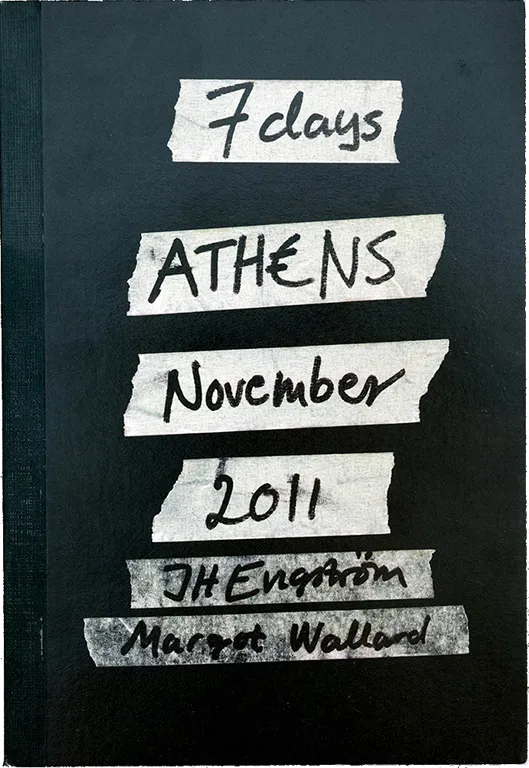 7 days
ATH€NS
November
2011
JH Engström
Margot Wallard